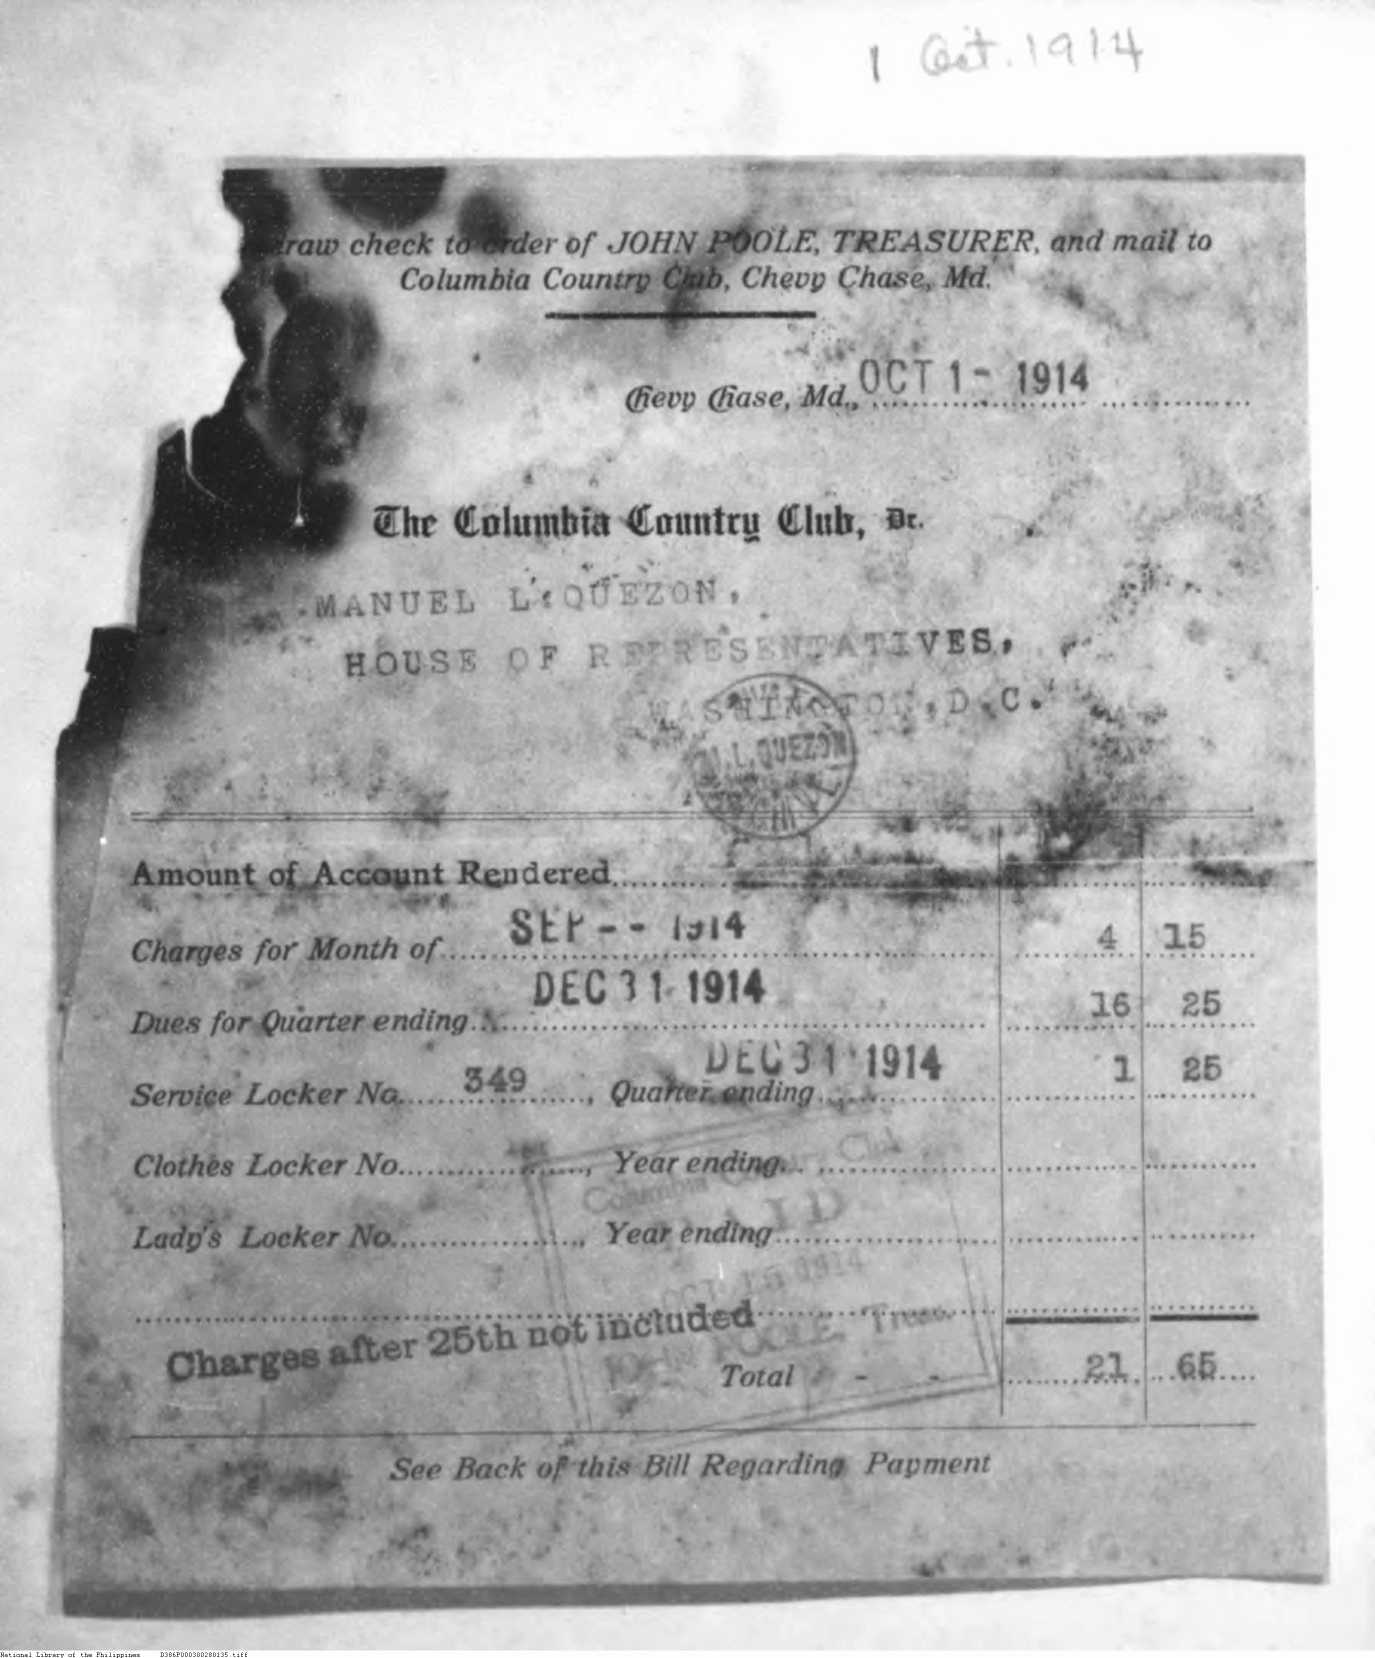 1 Oct. 1914
raw check to order of JOHN POOLE, TREASURER, and mail to
Columbia Country Club, Chevy Chase, Md.
Chevy Chase, Md., OCT 1- 1914
The Columbia Country Club, Dr.
MANUEL L. QUEZON,
HOUSE OF REPRESENTATIVES,
WASHINGTON, D.C.
M.L. QUEZON
Amount of Account Rendered
Charges for Month of SEP -- 1914 4 15
Dues for Quarter ending DEC 31 1914 16 25
Service Locker No. 349, Quarter ending DEC 31 1914 1 25
Clothes Locker No., Year ending
Lady's Locker No., Year ending
Columbia Country Club
PAID
OCT 15 1914
JOHN POOLE, Treas.
Charges after 25th not included
Total - - 21 65
See Back of this Bill Regarding Payment
National Library of the Philippines D386P000300280135.tiff